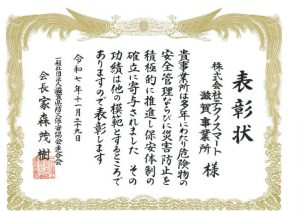 表彰状
株式会社テクノスマート
滋賀事業所 様
貴事業所は多年にわたり危険物の
安全管理ならびに災害防止を
積極的に推進し保安体制の
確立に寄与されました その
功績は他の模範とするところで
ありますので表彰します
令和七年十一月二十九日
会長 家森茂樹